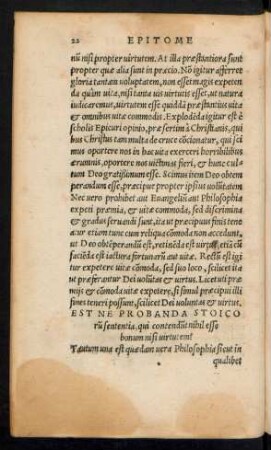 22 EPITOME
nũ nisi propter uirtutem. At illa præstantiora sunt
propter quæ alia sunt in præcio. Nõ igitur afferret
gloria tantam uoluptatem, non esset magis expeten
da quàm uita, nisi tanta uis uirtutis esset, ut natura
iudicaremus, uirtutem esse quiddã præstantius uita
& omnibus uitæ commodis. Explodẽda igitur est è
scholis Epicuri opinio, præsertim à Christianis, qui
bus Christus tam multa de cruce cõcinatur, qui sci
mus oportere nos in hac uita exerceri horribilibus
ærumnis, oportere nos uictimas fieri, & hunc cultum
Deo gratissimum esse. Scimus item Deo obtem
perandum esse, præcipue propter ipsius uolũtatem
Nec uero prohibet aut Euangelium aut Philosophia
expeti præmia, & uitæ commoda, sed discrimina
& gradus seruandi sunt, ut præcipuus finis tene
atur etiam tunc cum reliqua cõmoda non accedunt.
ut Deo obtẽperandũ est, retinẽda est uirtus, etiã cũ
faciẽda est iactura fortunarũ aut uitæ. Rectũ est igi
tur expetere uitæ cõmoda, sed suo loco, scilicet ita
ut præferantur Dei volũtas & uirtus. Licet uti præ
mijs & cõmoda uitæ expetere, si simul præcipui illi
fines teneri possunt, scilicet Dei uoluntas & uirtus.
EST NE PROBANDA STOICO
rũ sententia, qui contendũt nihil esse
bonum nisi uirtutem?
Tantum una est quædam uera Philosophia sicut in
qualibet